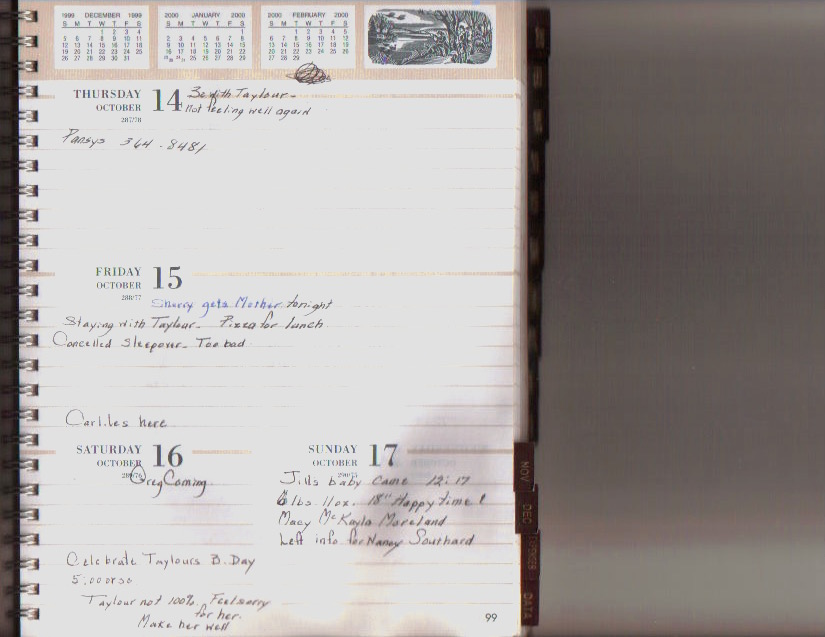 1999 DECEMBER 1999
S M T W T F S
1 2 3 4
5 6 7 8 9 10 11
12 13 14 15 16 17 18
19 20 21 22 23 24 25
26 27 28 29 30 31
2000 JANUARY 2000
S M T W T F S
1
2 3 4 5 6 7 8
9 10 11 12 13 14 15
16 17 18 19 20 21 22
23 30 24 31 25 26 27 28 29
2000 FEBRUARY 2000
S M T W T F S
1 2 3 4 5
6 7 8 9 10 11 12
13 14 15 16 17 18 19
20 21 22 23 24 25 26
27 28 29
THURSDAY 14
OCTOBER
287/78
Be with Taylour -
Not feeling well again
Pansys 364-8481
FRIDAY 15
OCTOBER
288/77
Sherry gets Mother tonight
Staying with Taylour - Pizza for lunch
Cancelled Sleepover - Too bad
Carliles here
SATURDAY 16
OCTOBER
289/76
Greg Coming
Celebrate Taylours B. Day
5:00 or so
Taylour not 100%. Feel sorry
for her.
Make her well
SUNDAY 17
OCTOBER
290/75
Jills baby came 12:17
6 lbs 11oz. 18" Happy time!
Macy McKayla Moreland
Left info for Nancy Southard
99
NOV
DEC
DATA